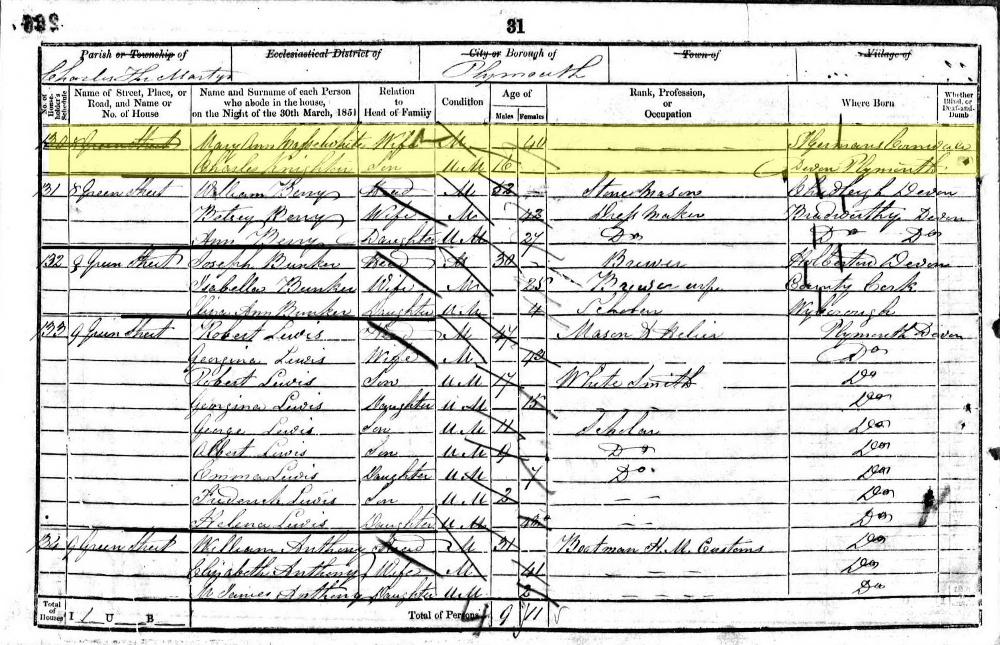 31
Parish or Township of Ecclesiastical District of City or Borough of Town of Village of
Charles The Martyr Plymouth
No. of House-holder's Schedule Name of Street, Place, or Road, and Name or No. of House Name and Surname of each Person who abode in the house, on the Night of the 30th March, 1851 Relation to Head of Family Condition Age of Males Females Rank, Profession, or Occupation Where Born Whether Blind, or Deaf-and-Dumb
130 8 Green Street Mary Ann Wife M 40 St Germans Cornwall
Charles Knighton Son U M 16 Devon Plymouth
131 8 Green Street William Berry Head M 52 Stone Mason Chudleigh Devon
Betsey Berry Wife M Dress Maker Bradworthy Devon
Ann Berry Daughter U M 24 Do Do Do
132 9 Green Street Joseph Bunker Head M 30 Brewer Devon
Isabella Bunker Wife M 25 County Cork
Ann Bunker Daughter U M 4
133 9 Green Street Robert Lewis Head M 47 Mason Plymouth Devon
Georgina Lewis Wife M 43 Do
Robert Lewis Son U M 17 White Smith Do
Georgina Lewis Daughter U M 15 Do
George Lewis Son U M 11 Scholar Do
Albert Lewis Son U M 9 Do Do
Emma Lewis Daughter U M 7 Do Do
Frederick Lewis Son U M 2 Do
Helena Lewis Daughter U M Do
134 9 Green Street William Anthony Head M 31 Boatman H.M. Customs Do
Elizabeth Anthony Wife M 41 Do
Anthony Daughter U M 2 Do
Total of Houses I U B Total of Persons 9 11